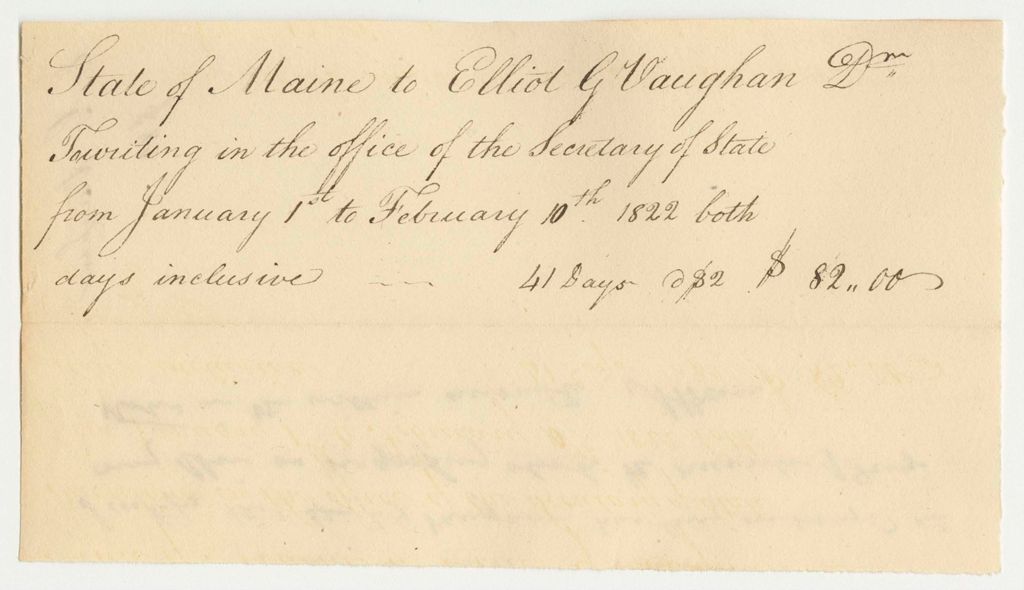 State of Maine to Elliot G Vaughan Dr
To writing in the office of the Secretary of State
from January 1st to February 10th 1822 both
days inclusive — 41 Days @ $2 $ 82,,00